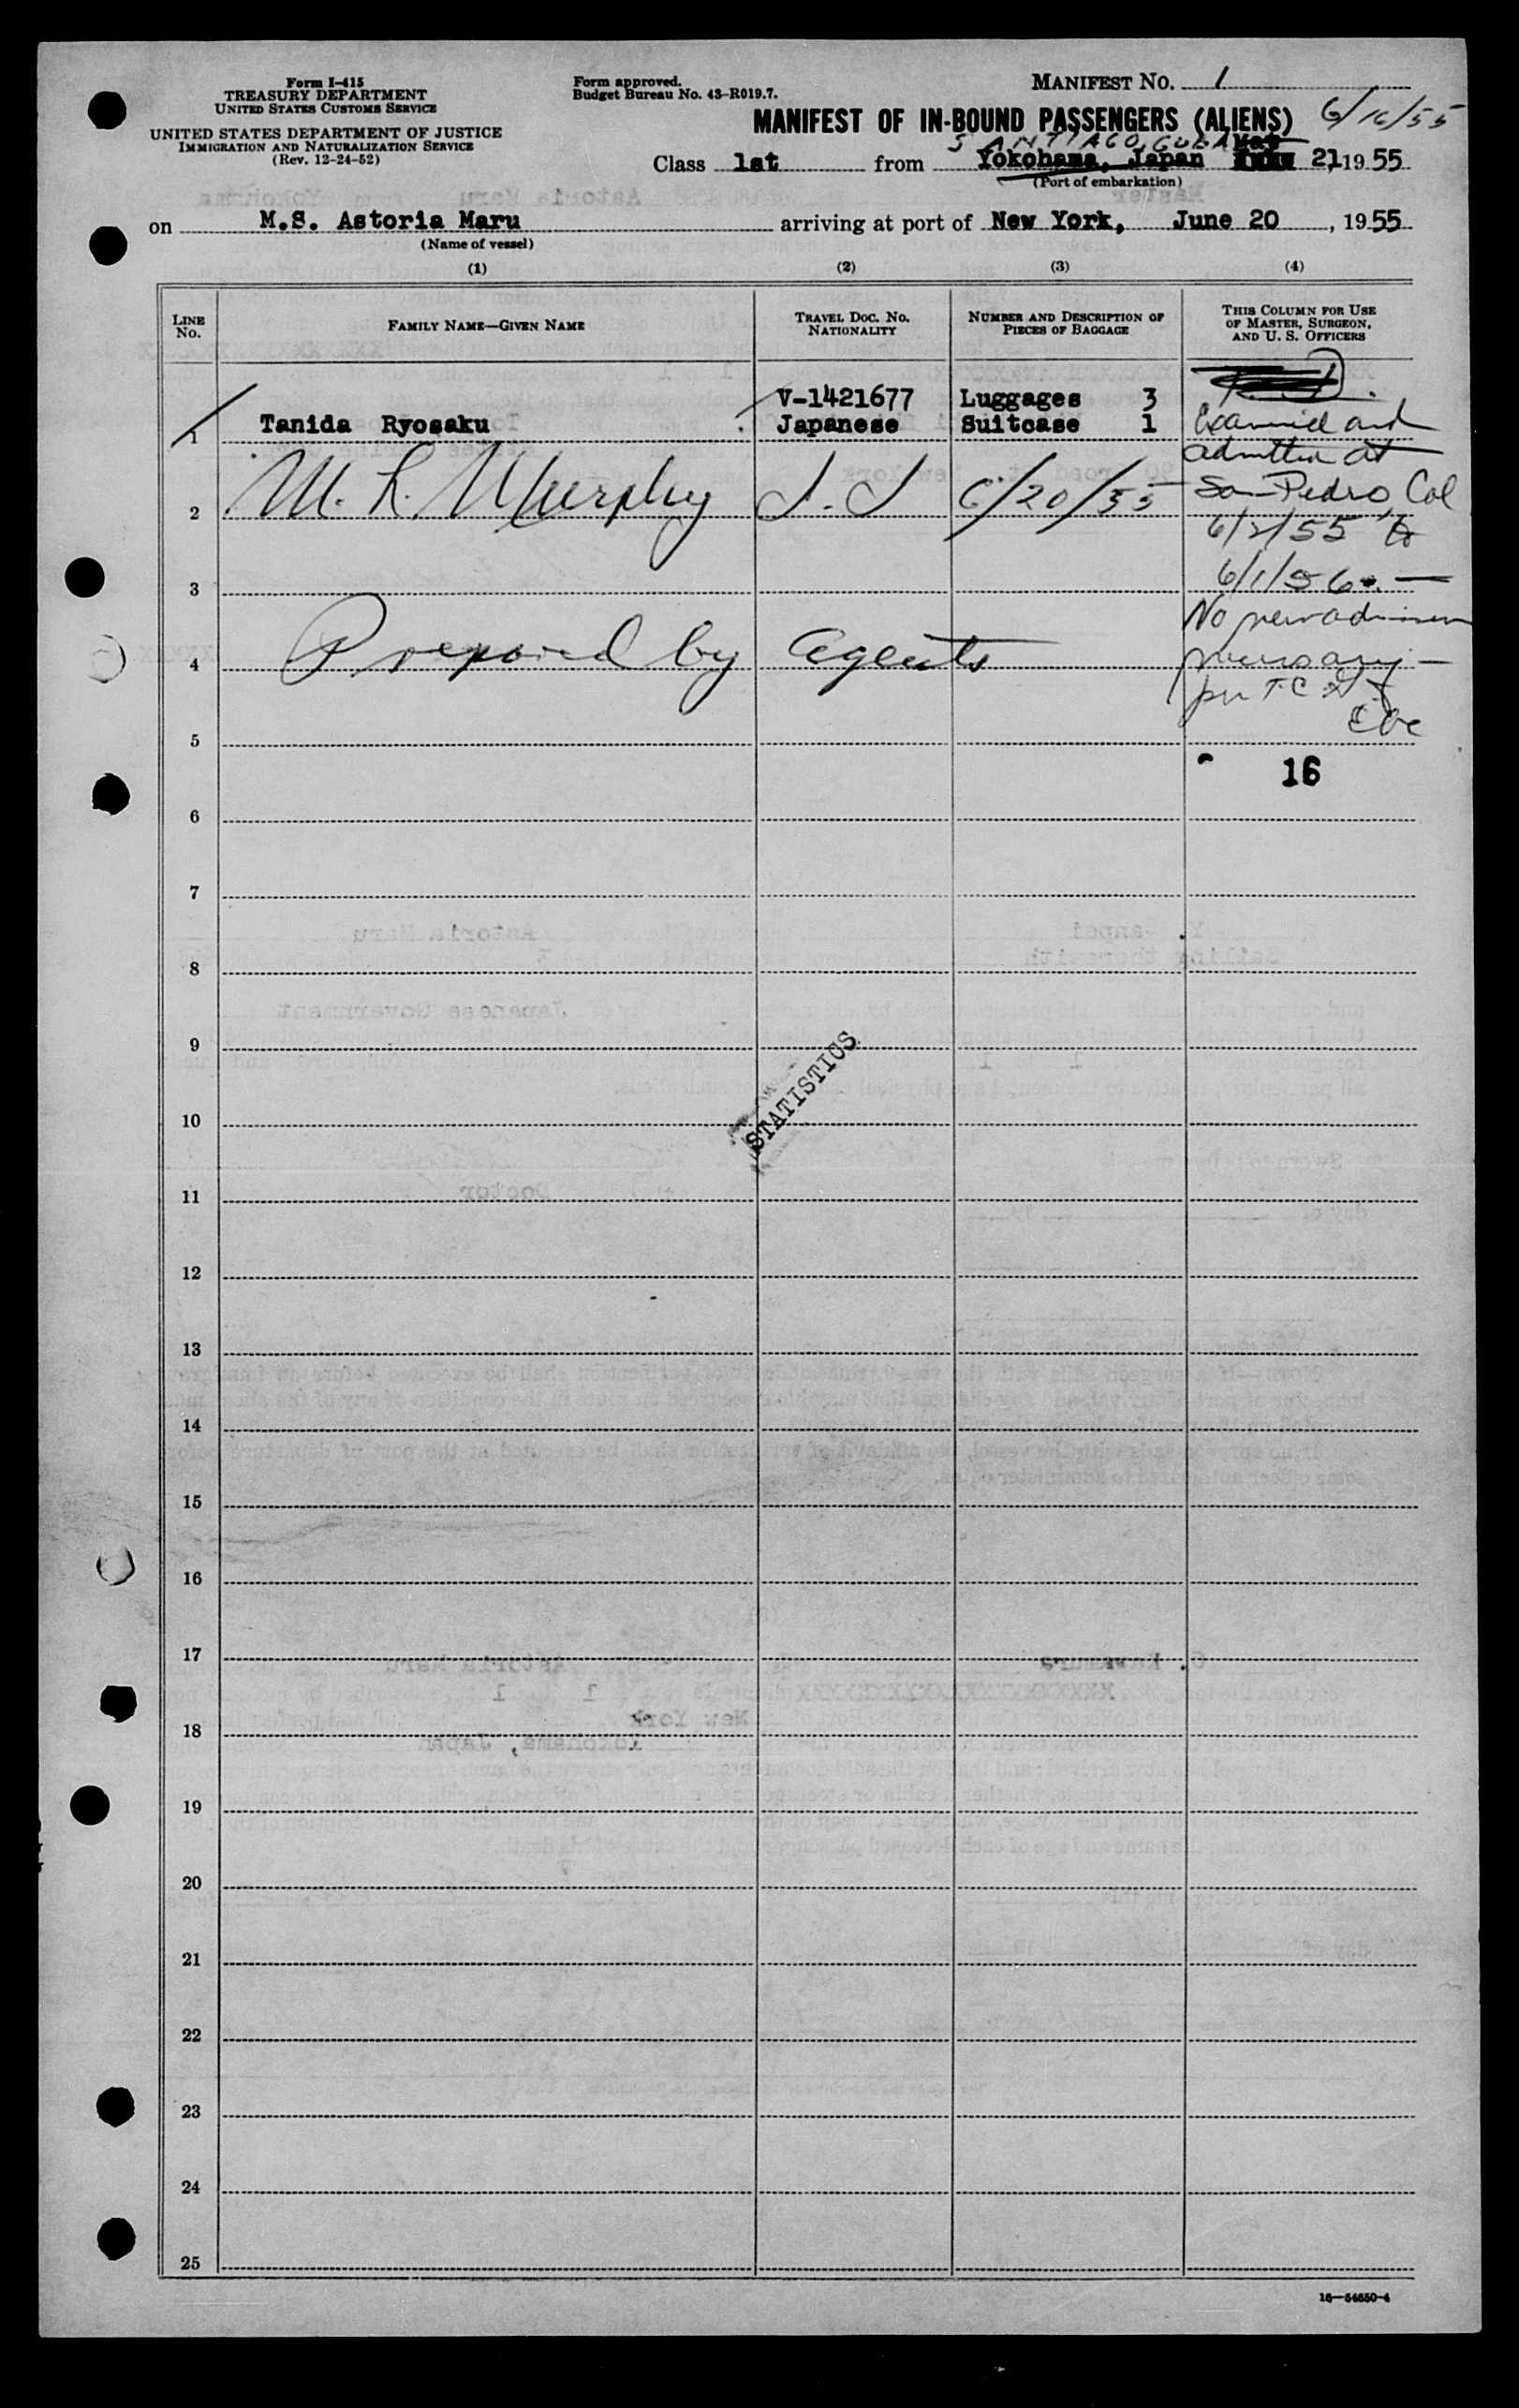 Form I-415
TREASURY DEPARTMENT
UNITED STATES CUSTOMS SERVICE
UNITED STATES DEPARTMENT OF JUSTICE
IMMIGRATION AND NATURALIZATION SERVICE
(Rev. 12-24-52)
Form approved.
Budget Bureau No. 43-R019.7.
MANIFEST No. 1
MANIFEST OF IN-BOUND PASSENGERS (ALIENS) 6/16/55
SANTIAGO, CUBA May
Class 1st from Yokohama, Japan 21, 1955
(Port of embarkation)
on M.S. Astoria Maru arriving at port of New York, June 20, 1955
(Name of vessel)
(1) (2) (3) (4)
LINE No. FAMILY NAME—GIVEN NAME TRAVEL DOC. No. NATIONALITY NUMBER AND DESCRIPTION OF PIECES OF BAGGAGE THIS COLUMN FOR USE OF MASTER, SURGEON, AND U. S. OFFICERS
V-1421677 Luggages 3
1 Tanida Ryosaku Japanese Suitcase 1 Examined and
admitted at
2 M. L. Murphy 6/20/55 San Pedro, Cal
6/2/55 to
3 6/1/56. —
No new admission
4 Prepared by Agents necessary —
per
5
16
6
7
8
9
10
STATISTICS
11
12
13
14
15
16
17
18
19
20
21
22
23
24
25
16—54650-4